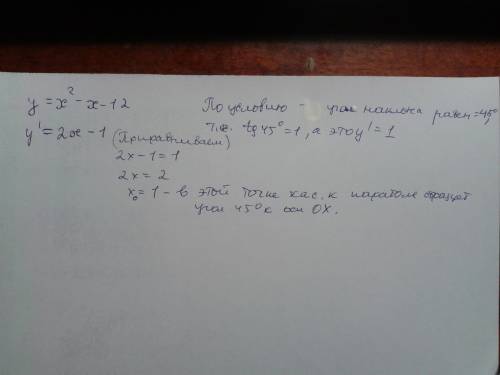 y = x² - x - 12 По условию - угол наклона равен = 45°,
y' = 2x - 1 т.е. tg 45° = 1, а это y' = 1
(Приравниваем)
2x - 1 = 1
2x = 2
x₀ = 1 - в этой точке кас. к параболе образует
угол 45° к оси OX.